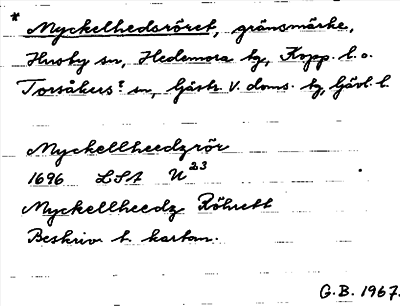 * Myckelhedsröret, gränsmärke,
Husby sn, Hedemora tg, Kopp. l. o.
Torsåkers? sn, Gästr. V. doms. tg, Gävl. l.
Myckellheedzrör
1696 LSA U23
Myckellheedz Röhrett
Beskrivn t. kartan.
G.B. 1967.